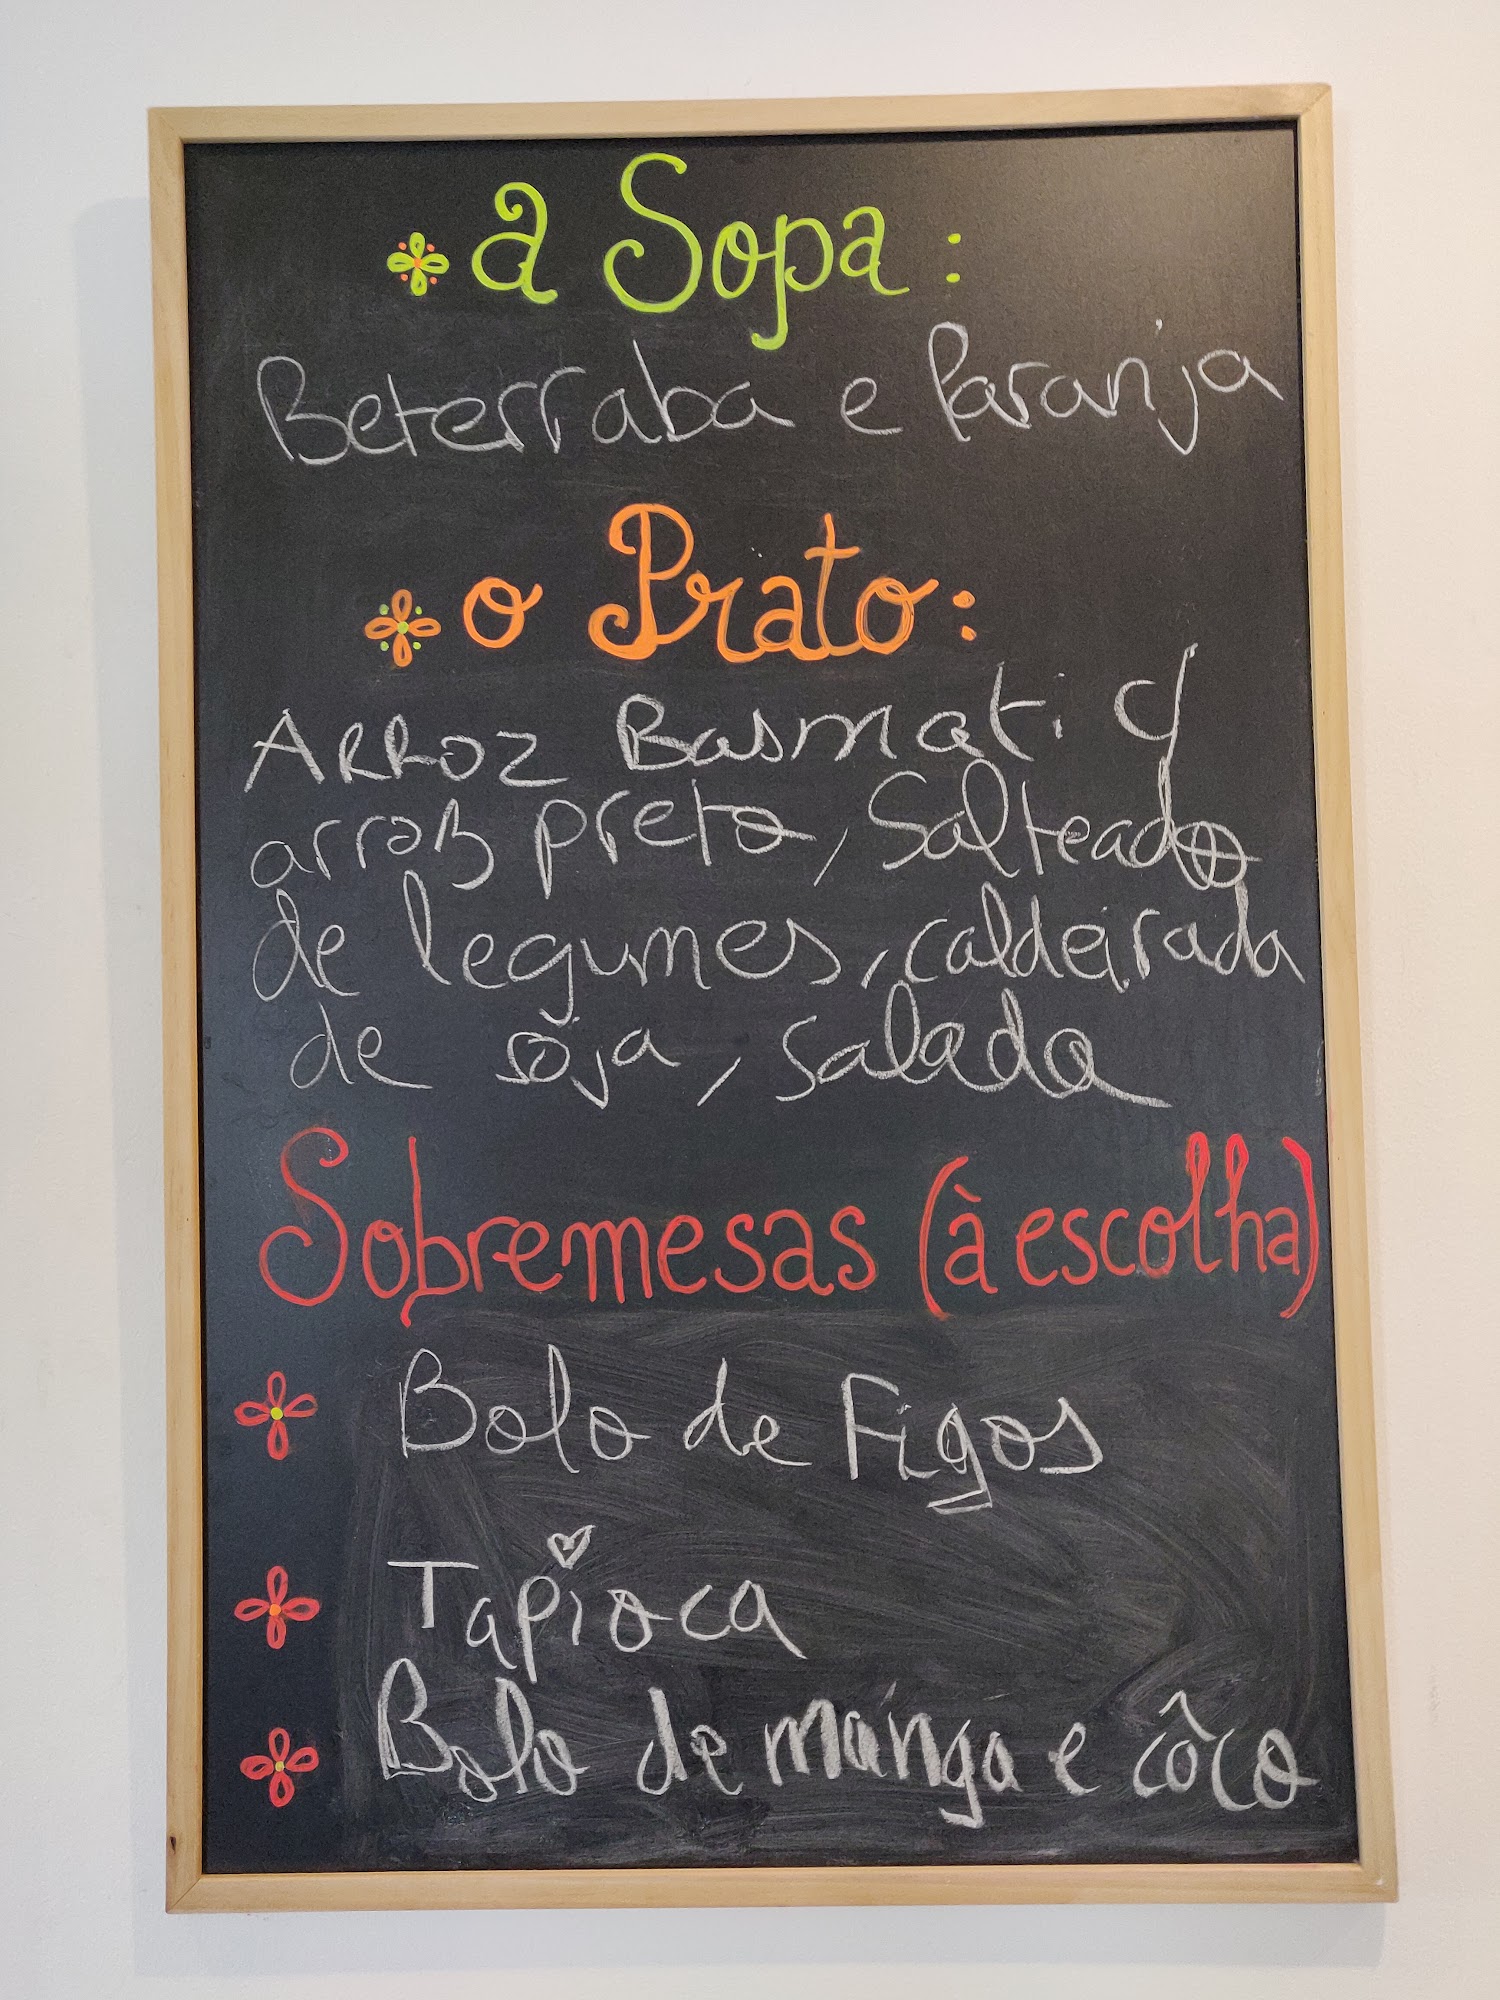 a Sopa:
Beterraba e laranja
o Prato:
ARROZ Basmati c/
arroz preto, Salteado
de legumes, caldeirada
de soja, salada
Sobremesas (à escolha)
Bolo de Figos
Tapioca
Bolo de manga e côco